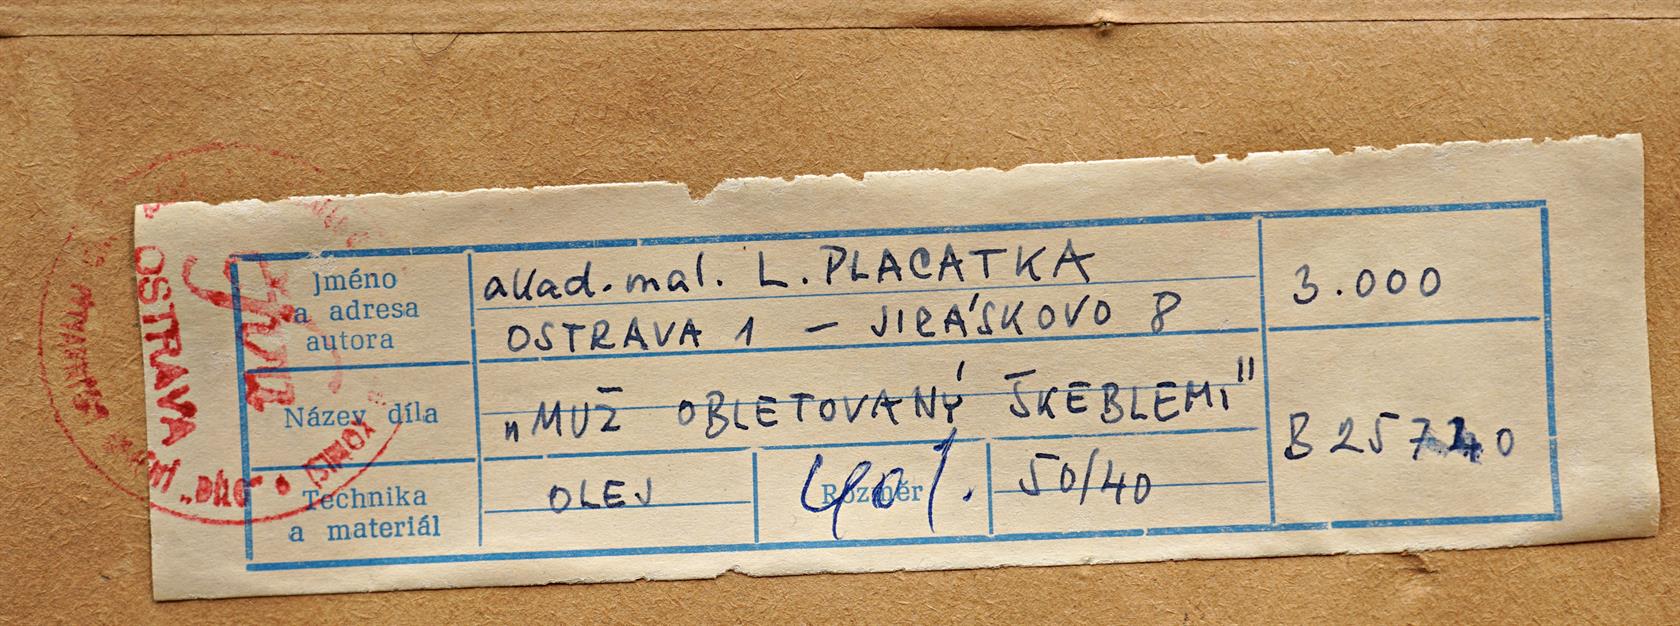 Jméno
a adresa
autora
akad. mal. L. PLACATKA
OSTRAVA 1 – JIRÁSKOVO 8
3.000
Název díla
„MUŽ OBLETOVANÝ ŠKEBLEMI"
B 25740
Technika
a materiál
OLEJ
Rozměr
50/40
OSTRAVA
"DÍLO"
KOMISÍ